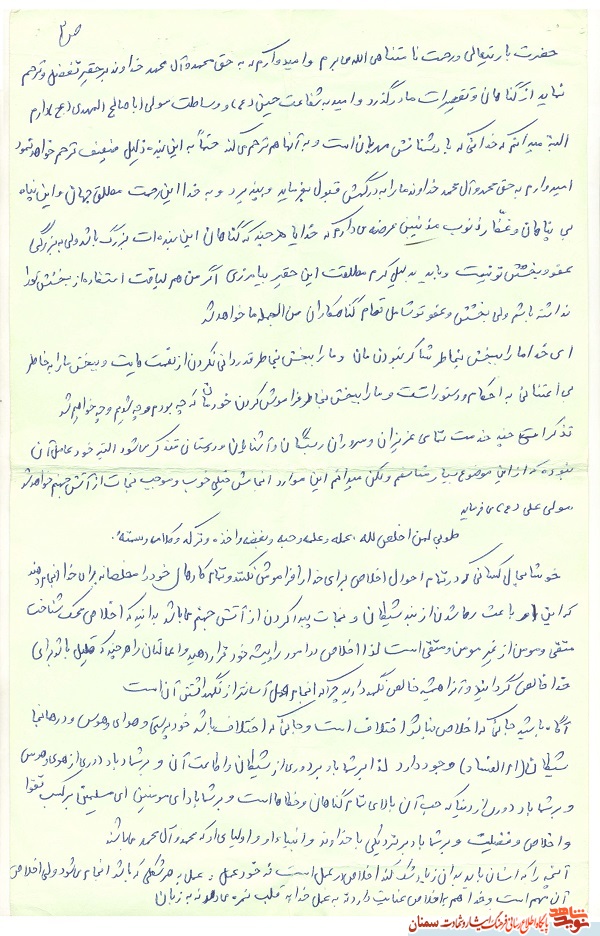 ص ۳
حضرت باریتعالی و رحمت نامتناهی الله می‌برم و امیدوارم که به حق محمد و آل محمد خداوند بر حقیر تفضل و ترحم
نماید از گناهان و تقصیرات ما درگذرد و امید به شفاعت حسین (ع) و وساطت مولی اباصالح المهدی (عج) دارم
البته میدانم که خدائی که با دشمنانش مهربان است و به آنها هم ترحم می‌کند حتماً به این بنده ذلیل ضعیف ترحم خواهد نمود
امیدوارم به حق محمد و آل محمد خداوند ما را به درگهش قبول بفرماید و بپذیرد و به خدا این رحمت مطلق جهان و این پناه
بی پناهان و غفار ذنوب مؤمنین عرضه می‌دارم که خدایا هر چند که گناهان این بنده‌ات بزرگ باشد ولی به بزرگی
عفو و بخشش تو نیست و باید به دلیل کرم مطلقت این حقیر بیامرزی اگر من هم لیاقت استفاده از بخشش تو را
نداشته باشم ولی بخشش و عفو تو شامل تمام گناهکاران من الجمله ما خواهد شد
ای خدا ما را ببخش بخاطر شاکر نبودن مان و ما را ببخش بخاطر قدردانی نکردن از نعمت‌هایت و ببخش ما را به خاطر
بی اعتنائی به احکام و دستوراتت و ما را ببخش بخاطر فراموش کردن خودمان که چه بودیم و چه شدیم و چه خواهیم شد
تذکراتی چند خدمت تمامی عزیزان و سروران و بستگان و آشنایان و دوستان متذکر می‌شود البته خود عامل آن
نبوده که از این موضوع بسیار متاسفم ولکن میدانم این موارد انجامش خیلی خوب و موجب نجات از آتش جهنم خواهد شد
مولی علی (ع) می‌فرماید
طوبی لمن اخلص لله عمله و علمه و حبه و بغضه و اخذه و ترکه و کلامه و صمته.
خوشا بحال کسانی که در تمام احوال اخلاص برای خدا را فراموش نکنند و تمام کارهای خود را مخلصانه برای خدا انجام دهند
که این امر باعث رها شدن از بند شیطان و نجات پیدا کردن از آتش جهنم می‌باشد بدانید که اخلاص محک شناخت
متقی و مومن از غیر مومن و متقی است لذا اخلاص در امور را پیشه خود قرار دهید و اعمالتان را هر چند که قلیل باشد برای
خدا خالص گردانید و آنرا همیشه خالص نگهدارید چرا که انجام عمل آسانتر از نگهداشتن آن است
آگاه باشید جائی که اخلاص نباشد اختلاف است و جائی که اختلاف باشد خودپرستی و هوای و هوس و در همانجا
شیطان (ام الفساد) وجود دارد لذا بر شما باد بر دوری از شیطان و اطاعت آن و بر شما باد دوری از هوی و هوس
و بر شما باد دوری از دنیا که حب آن بالای تمام گناهان و خطاها است و بر شما باد ای مومنین ای مسلمین بر کسب تقوا
و اخلاص و فضیلت و بر شما باد بر نزدیکی با خداوند و انبیاء او و اولیای او که محمد و آل محمد می‌باشند
آنچه را که انسان باید بدان زیاد فکر کند اخلاص در عمل است نه خود عمل و عمل به هر شکلی که باشد انجام می‌شود ولی اخلاص
آن مهم است و خدا هم به اخلاص عنایت دارد نه به عمل خدا به قلب نمره می‌دهد نه به زبان
نوید شاهد
پایگاه اطلاع رسانی فرهنگ ایثار و شهادت سمنان